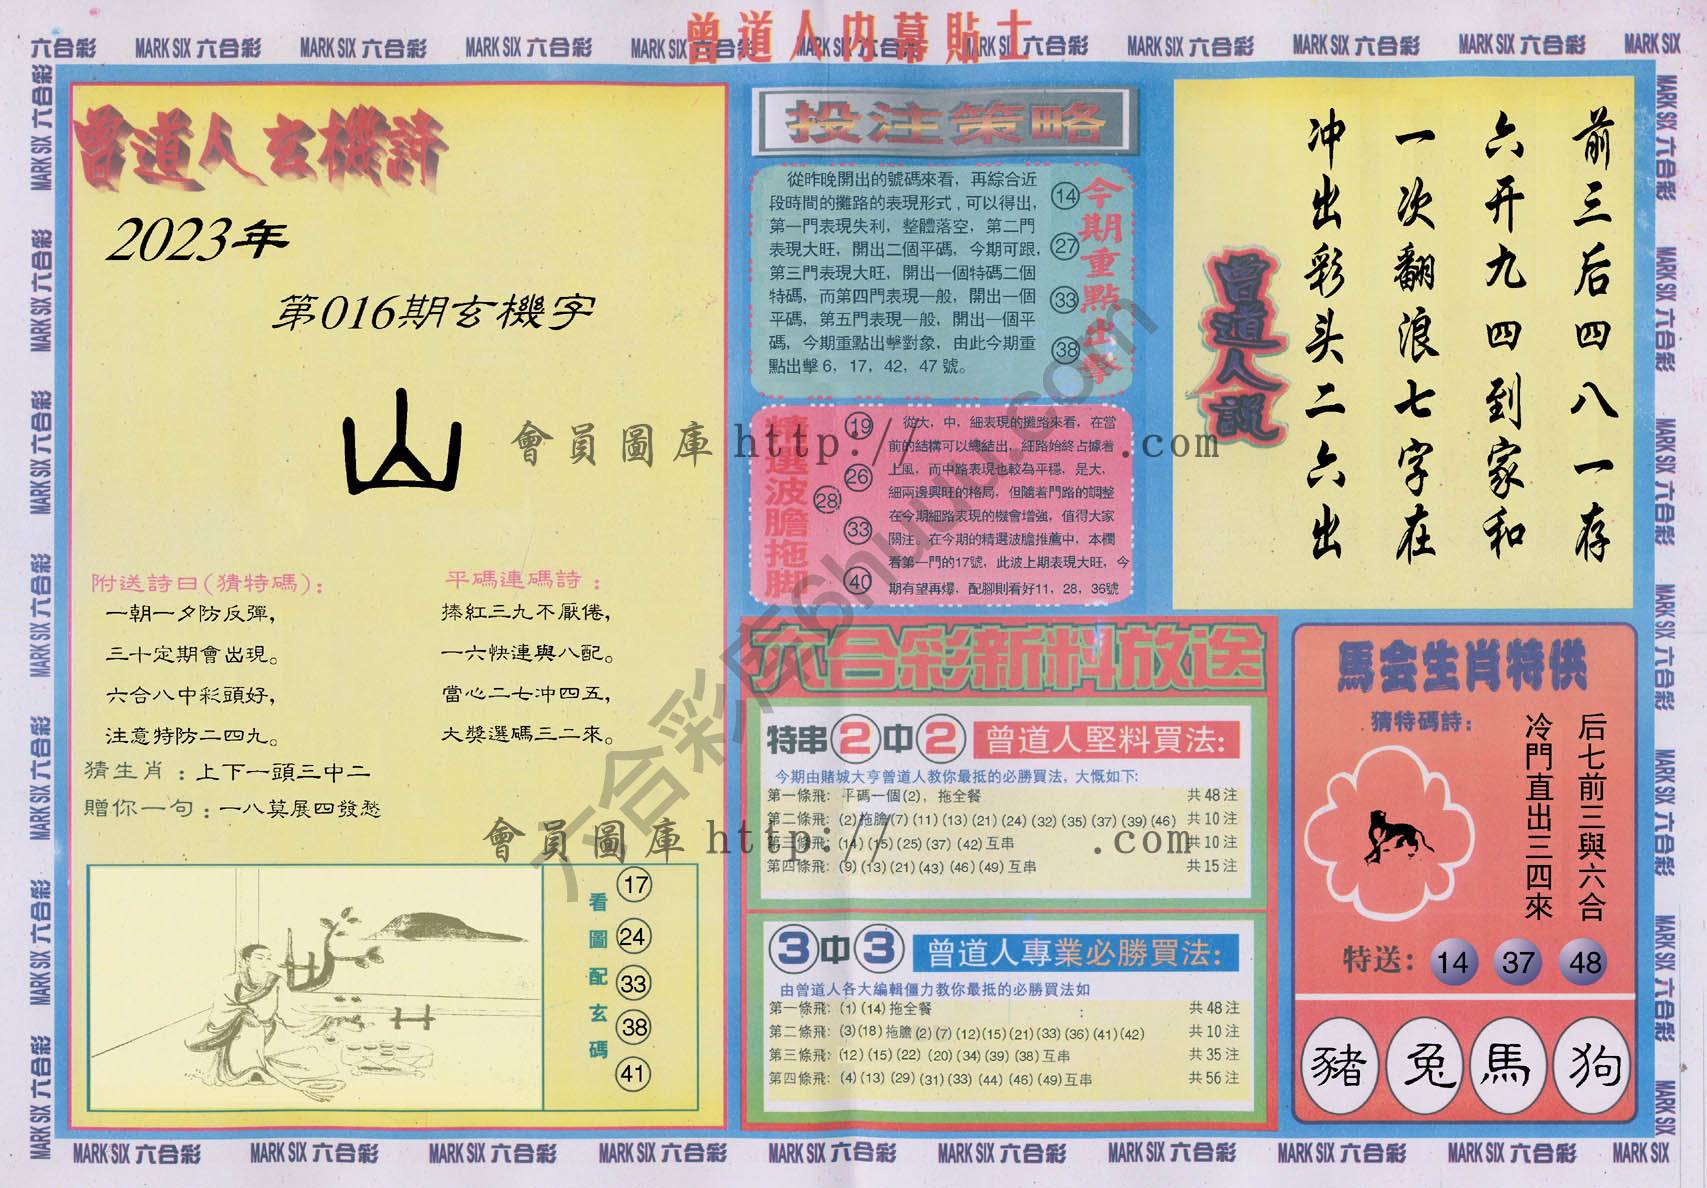 曾道人内幕貼士
六合彩 MARK SIX 六合彩 MARK SIX 六合彩 MARK SIX 六合彩 MARK SIX 六合彩 MARK SIX 六合彩 MARK SIX 六合彩 MARK SIX 六合彩 MARK SIX 六合彩 MARK SIX 六合彩 MARK SIX
曾道人玄機詩
2023年
第016期玄機字
山
附送詩曰(猜特碼)：
一朝一夕防反彈，
三十定期會出現。
六合八中彩頭好，
注意特防二四九。
平碼連碼詩：
捧紅三九不厭倦，
一六快連與八配。
當心二七冲四五，
大獎選碼三二來。
猜生肖：上下一頭三中二
贈你一句：一八莫展四發愁
看圖配玄碼
17
24
33
38
41
投注策略
從昨晚開出的號碼來看，再綜合近
段時間的攤路的表現形式，可以得出，
第一門表現失利，整體落空，第二門
表現大旺，開出二個平碼，今期可跟，
第三門表現大旺，開出一個特碼二個
特碼，而第四門表現一般，開出一個
平碼，第五門表現一般，開出一個平
碼，今期重點出擊對象，由此今期重
點出擊 6，17，42，47 號。
14
27
33
38
今期重點出擊
精選波膽拖脚
19
26
28
33
40
從大，中，細表現的攤路來看，在當
前的結構可以總結出，細路始終占據着
上風，而中路表現也較為平穩，是大，
細兩邊興旺的格局，但隨着門路的調整
在今期細路表現的機會增強，值得大家
關注。在今期的精選波膽推薦中，本欄
看第一門的17號，此波上期表現大旺，今
期有望再爆，配腳則看好11，28，36號
前三后四八一存
六开九四到家和
一次翻浪七字在
冲出彩头二六出
曾道人說
六合彩新料放送
特串2中2 曾道人堅料買法：
今期由賭城大亨曾道人教你最抵的必勝買法，大慨如下：
第一條飛：平碼一個(2)，拖全餐 共 48 注
第二條飛：(2)拖膽(7) (11) (13) (21) (24) (32) (35) (37) (39) (46) 共 10 注
第三條飛：(14) (15) (25) (37) (42)互串 共 10 注
第四條飛：(9) (13) (21) (43) (46) (49)互串 共 15 注
3中3 曾道人專業必勝買法：
由曾道人各大編輯僵力教你最抵的必勝買法如
第一條飛：(1) (14)拖全餐 : 共 48 注
第二條飛：(3)(18)拖膽(2)(7) (12)(15) (21) (33) (36) (41)(42) 共 10 注
第三條飛：(12) (15) (22) (20) (34) (39) (38)互串 共 35 注
第四條飛：(4) (13) (29) (31) (33) (44) (46) (49)互串 共 56 注
馬会生肖特供
猜特碼詩：
后七前三與六合
冷門直出三四來
特送：14 37 48
豬 兔 馬 狗
會員圖庫 http:// .com
會員圖庫 http:// .com
MARK SIX 六合彩 MARK SIX 六合彩 MARK SIX 六合彩 MARK SIX 六合彩 MARK SIX 六合彩 MARK SIX 六合彩 MARK SIX 六合彩 MARK SIX 六合彩 MARK SIX 六合彩 MARK SIX